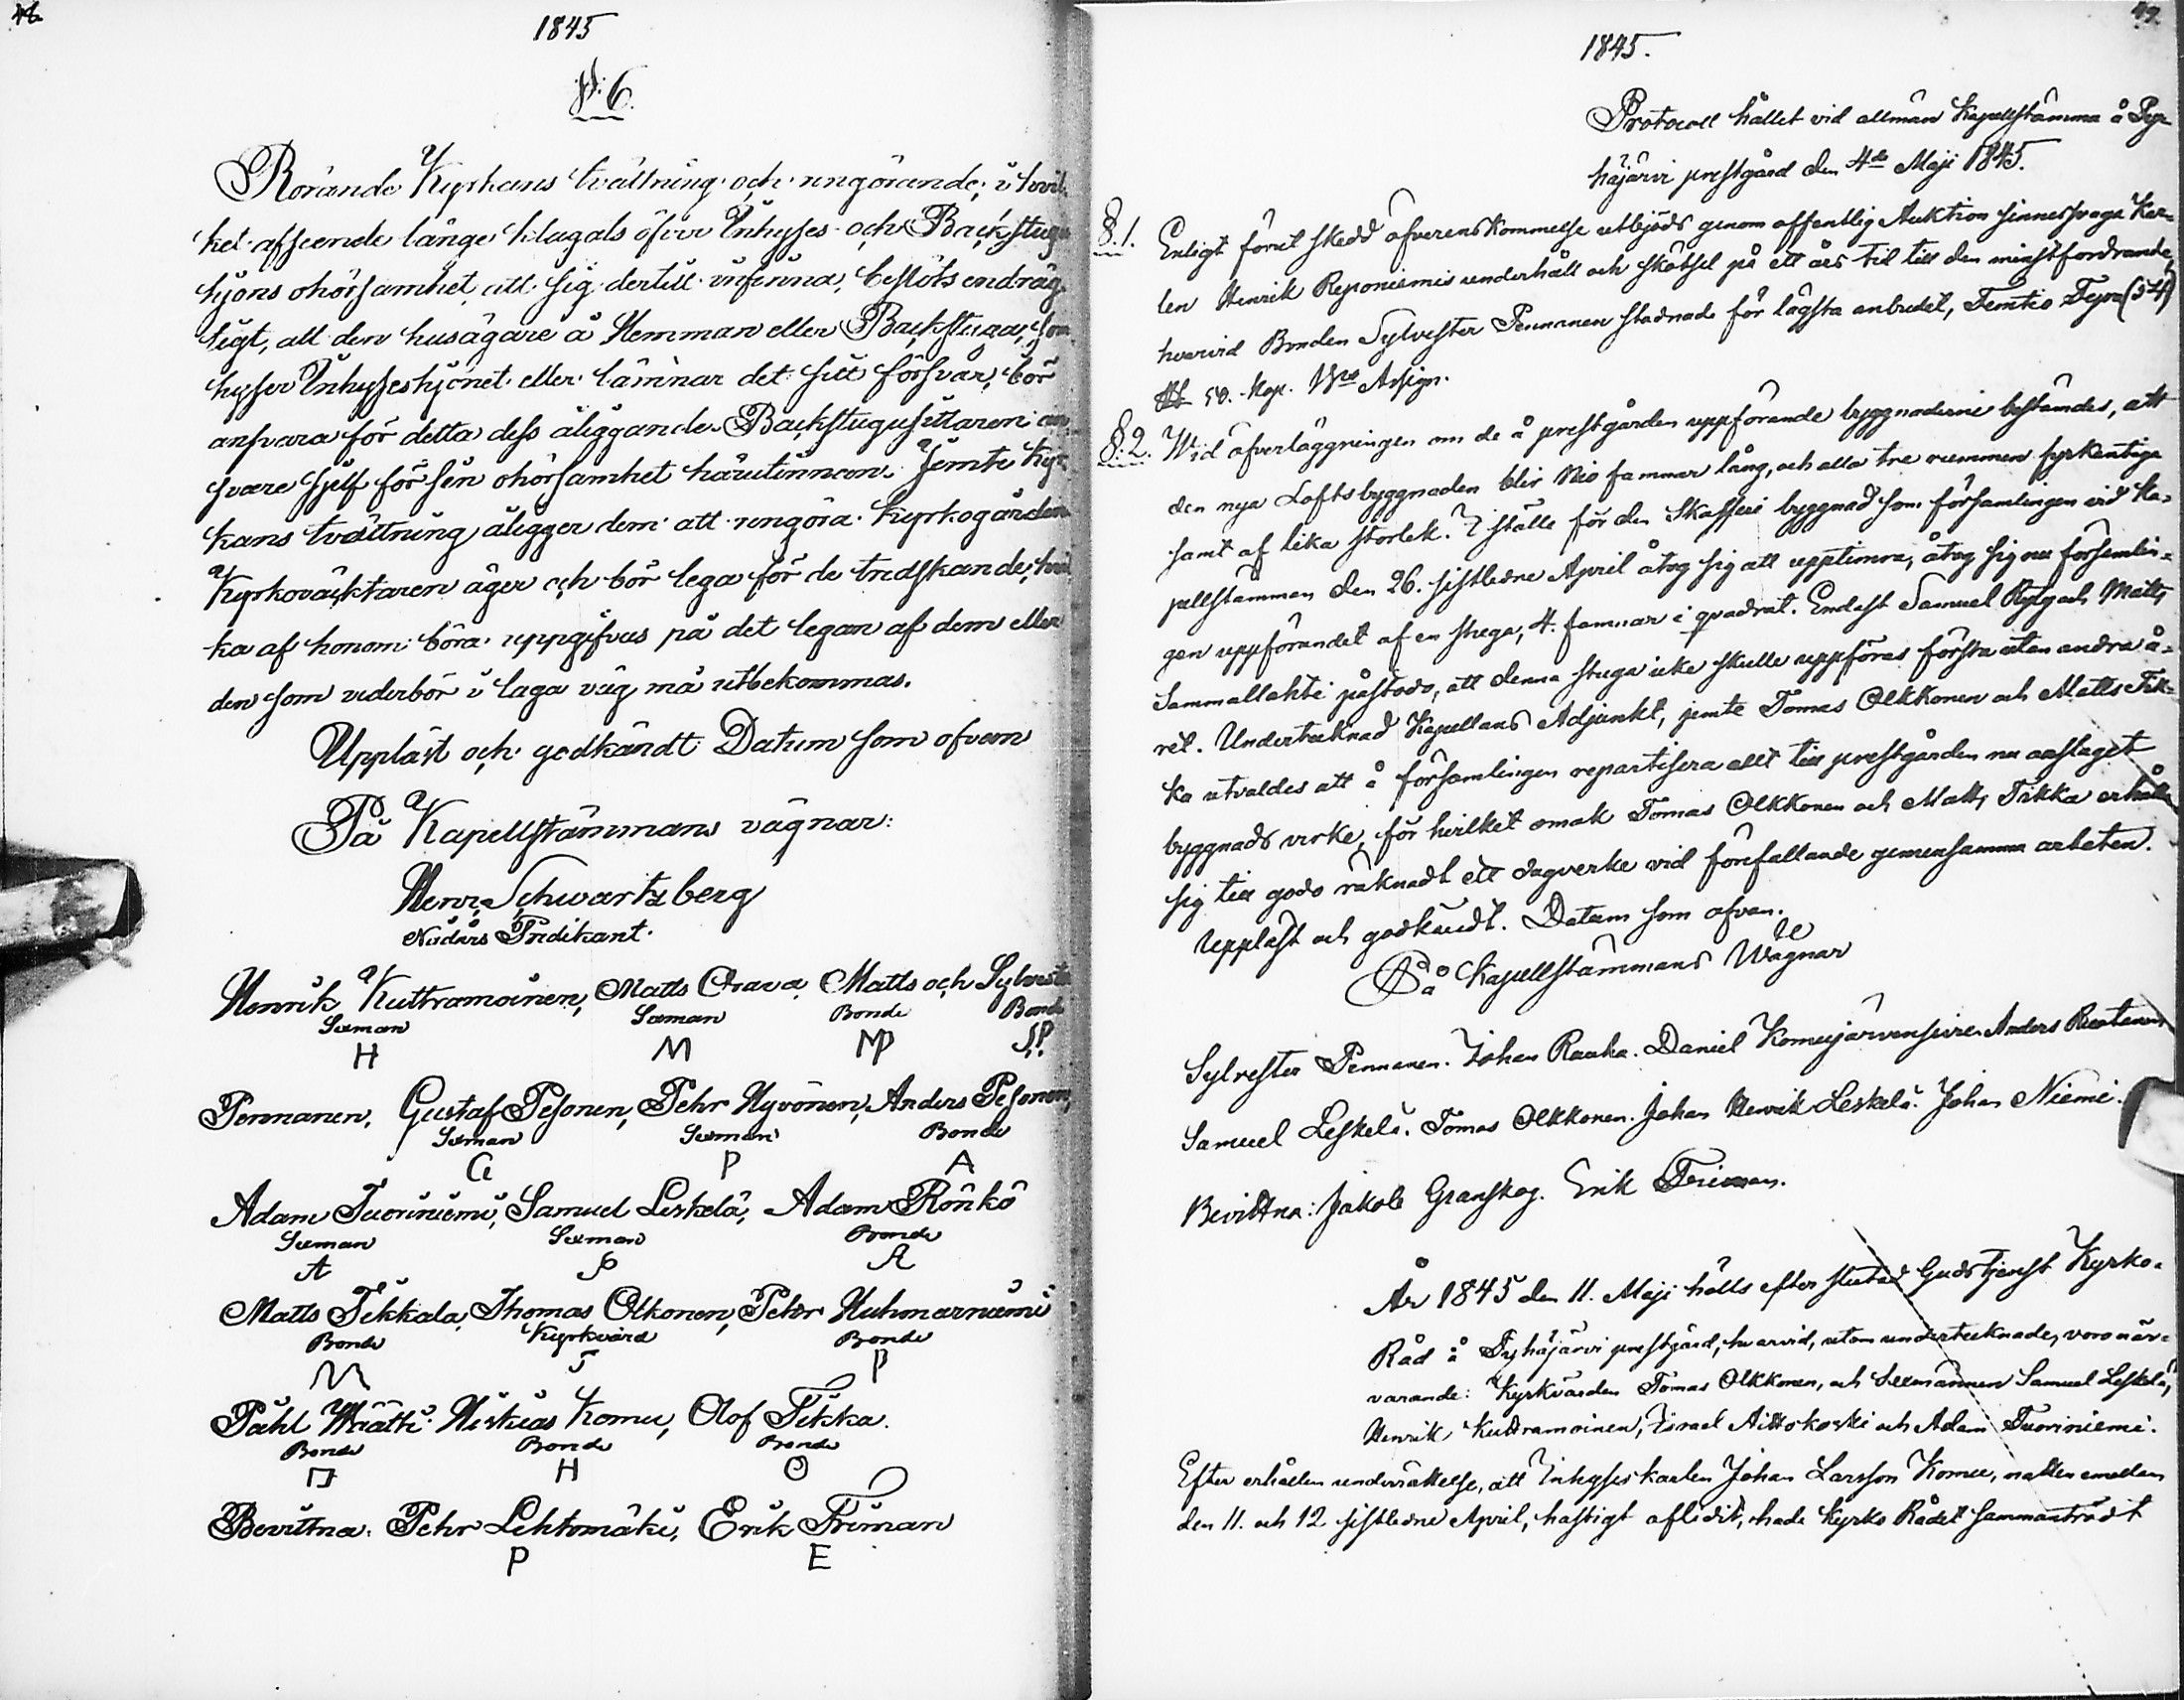 1845
§. 6.
Rörande Kyrkans tvättning och rengörande, i hvil-
ket afseende länge klagats öfver Inhyses och Backstugu
hjons ohörsamhet att sig dertill infinna, beslöts endräg-
tigt, att den husägare å Hemman eller Backstuga, som
hyser Inhyseshjonet eller lämnar det sitt försvar, bör
ansvara för detta dess åliggande. Backstugusittaren an-
svare sjelf för sin ohörsamhet härutinnan. Jemte Kyr-
kans tvättning åligger dem att rengöra Kyrkogården
Kyrkovacktaren äger och bör lega för de tredskande, hvil
ka af honom böra uppgifvas på det legan af dem eller
den som vederbör i laga väg må utbekommas.
Uppläst och godkändt Datum som ofvan
På Kapellstämmans vägnar:
Henr. Schwartzberg
Nödårs Predikant.
Henrik Kuttramoinen, Matts Orava, Matts och Sylvester
Sexman Sexman Bonde Bonde
H M MP S.P.
Pennanen, Gustaf Pesonen, Pehr Hyvönen, Anders Pesonen,
Sexman Sexman Bonde
G P A
Adam Tuoriniemi, Samuel Leskelä, Adam Rönkö
Sexman Sexman Bonde
A S A
Matts Tikkala, Thomas Olkonen, Pehr Huhmarniemi
Bonde Kyrkvärd Bonde
M T P
Påhl Määttä Hiskias Komu, Olof Tikka.
Bonde Bonde Bonde
H O
Bevittna: Pehr Lehtomäki, Erik Friman
P E
1845.
Protocoll hållet vid allmän Kapellstämma å Py-
häjärvi prestgård den 4de Maji 1845.
§. 1. Enligt förut skedd öfverenskommelse utbjöds genom offentlig Auktion sinnessvaga Kar-
len Henrik Reponiemis underhåll och skötsel på ett års tid till den minstfordrande,
hvarvid Bonden Sylvester Pennanen stadnade för lägsta anbudet, Femtio Fyra (54)
50. Kop. Assign.
§. 2. Wid öfverläggningen om de å prestgården uppförande byggnaderne bestämdes, att
den nya Loftsbyggnaden blir Nio famnar lång, och alla tre rummen fyrkantiga
samt af lika storlek. I ställe för den Skafferi byggnad som församlingen vid Ka-
pellstämman den 26. sistledne April åtog sig att upptimra, åtog sig nu församlin-
gen uppförandet af en stuga, 4. famnar i quadrat. Endast Samuel Ryty och Matts
Sammallahti påstodo, att denna stuga icke skulle uppföras första utan andra å-
ret. Undertecknad Kapellans Adjunkt, jemte Tomas Olkkonen och Matts Tik-
ka utvaldes att å församlingen repartisera allt till prestgården nu anslaget
byggnads virke, för hvilket omak Tomas Olkkonen och Matts Tikka erhålla
sig till godo räknadt ett dagverke vid förefallande gemensamma arbeten.
Uppläst och godkändt. Datum som ofvan.
På Kapellstämmans Wägnar
Sylvester Pennanen. Johan Rauha. Daniel Komujärvensivu. Anders
Samuel Leskelä. Tomas Olkkonen. Johan Henrik Leskelä. Johan Niemi.
Bevittna: Jakob Granskog. Erik Friman.
År 1845 den 11. Maji hölls efter slutad Gudstjenst Kyrko-
Råd å Pyhäjärvi prestgård, hvarvid, utom undertecknade, voro när-
varande: Kyrkvärden Tomas Olkkonen, och Sexmännen Samuel Leskelä,
Henrik Kuttramoinen, Israel Aittokoski och Adam Tuoriniemi.
Efter erhållen underrättelse, att Inhyseskarlen Johan Larsson Komu, natten emellan
den 11. och 12 sistledne April, hastigt aflidit, hade Kyrko Rådet sammanträdt